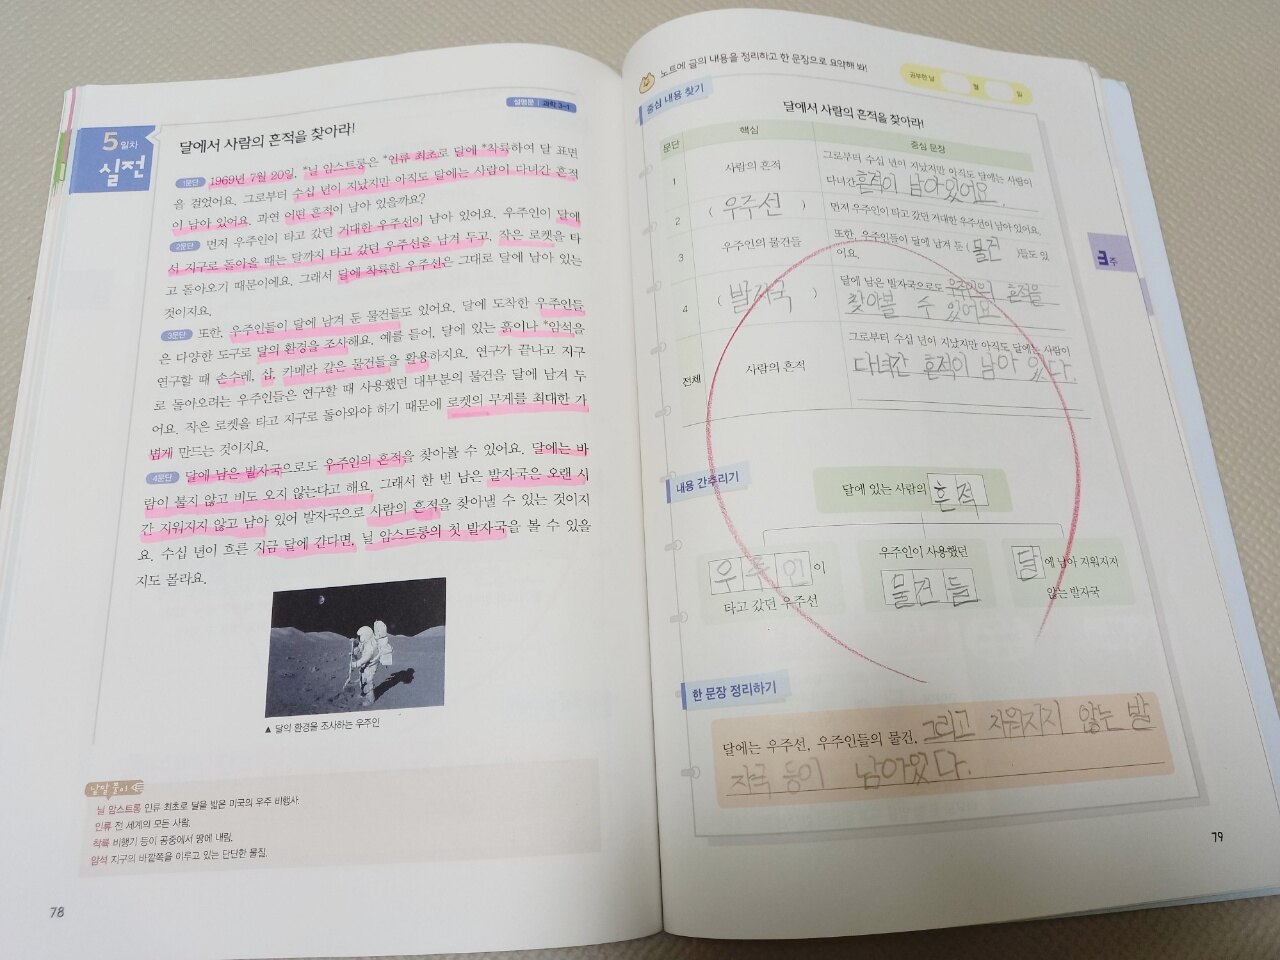 설명문 | 과학 3-1
5일차
실전
달에서 사람의 흔적을 찾아라!
1문단 1969년 7월 20일, *닐 암스트롱은 *인류 최초로 달에 *착륙하여 달 표면
을 걸었어요. 그로부터 수십 년이 지났지만 아직도 달에는 사람이 다녀간 흔적
이 남아 있어요. 과연 어떤 흔적이 남아 있을까요?
2문단 먼저 우주인이 타고 갔던 거대한 우주선이 남아 있어요. 우주인이 달에
서 지구로 돌아올 때는 달까지 타고 갔던 우주선을 남겨 두고, 작은 로켓을 타
고 돌아오기 때문이에요. 그래서 달에 착륙한 우주선은 그대로 달에 남아 있는
것이지요.
3문단 또한, 우주인들이 달에 남겨 둔 물건들도 있어요. 달에 도착한 우주인들
은 다양한 도구로 달의 환경을 조사해요. 예를 들어, 달에 있는 흙이나 *암석을
연구할 때 손수레, 삽, 카메라 같은 물건들을 활용하지요. 연구가 끝나고 지구
로 돌아오려는 우주인들은 연구할 때 사용했던 대부분의 물건을 달에 남겨 두
어요. 작은 로켓을 타고 지구로 돌아와야 하기 때문에 로켓의 무게를 최대한 가
볍게 만드는 것이지요.
4문단 달에 남은 발자국으로도 우주인의 흔적을 찾아볼 수 있어요. 달에는 바
람이 불지 않고 비도 오지 않는다고 해요. 그래서 한 번 남은 발자국은 오랜 시
간 지워지지 않고 남아 있어 발자국으로 사람의 흔적을 찾아낼 수 있는 것이지
요. 수십 년이 흐른 지금 달에 간다면, 닐 암스트롱의 첫 발자국을 볼 수 있을
지도 몰라요.
▲ 달의 환경을 조사하는 우주인
낱말 풀이
닐 암스트롱 인류 최초로 달을 밟은 미국의 우주 비행사.
인류 전 세계의 모든 사람.
착륙 비행기 등이 공중에서 땅에 내림.
암석 지구의 바깥쪽을 이루고 있는 단단한 물질.
78
노트에 글의 내용을 정리하고 한 문장으로 요약해 봐!
공부한 날 월 일
중심 내용 찾기
달에서 사람의 흔적을 찾아라!
문단 핵심 중심 문장
1 사람의 흔적 그로부터 수십 년이 지났지만 아직도 달에는 사람이
다녀간 흔적이 남아있어요.
2 ( 우주선 ) 먼저 우주인이 타고 갔던 거대한 우주선이 남아 있어요.
3 우주인의 물건들 또한, 우주인들이 달에 남겨 둔 ( 물건 )들도 있
어요.
4 ( 발자국 ) 달에 남은 발자국으로도 우주인의 흔적을
찾아볼 수 있어요
전체 사람의 흔적 그로부터 수십 년이 지났지만 아직도 달에는 사람이
다녀간 흔적이 남아 있다.
3주
내용 간추리기
달에 있는 사람의 흔적
우주인이
타고 갔던 우주선
우주인이 사용했던
물건들
달에 남아 지워지지
않는 발자국
한 문장 정리하기
달에는 우주선, 우주인들의 물건, 그리고 지워지지 않는 발
자국 등이 남아있다.
79